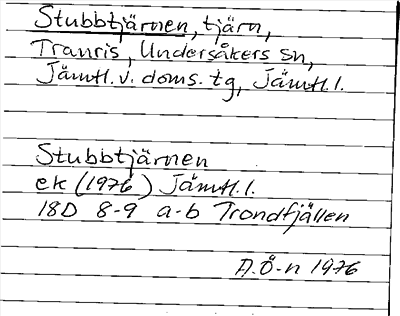 Stubbtjärnen, tjärn,
Tranris, Undersåkers sn,
Jämtl. v. doms. tg, Jämtl. l.
Stubbtjärnen
ek (1976) Jämtl. l.
18D 8-9 a-b Trondfjällen
A.Ö-n 1976